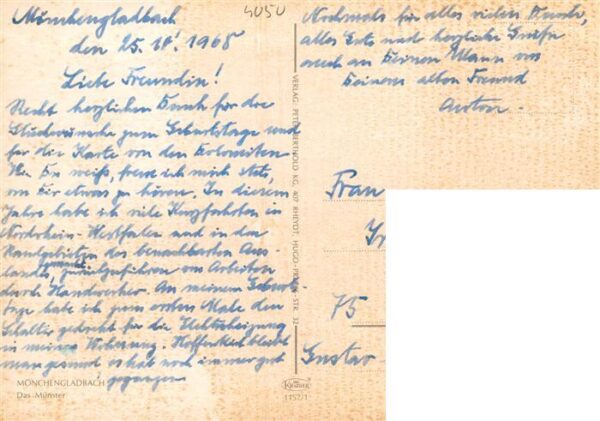 Mönchengladbach 4050
den 25. IV. 1968
Liebe Freundin!
Recht herzlichen Dank für die
Glückwünsche zum Geburtstage und
für die Karte von den Dolomiten.
Wie Du weißt, freue ich mich stets,
von Dir etwas zu hören. In diesem
Jahre habe ich viele Kurzfahrten in
Nordrhein-Westfalen und in den
Randgebieten des benachbarten Aus-
landes, von Arbeiten
durch Handwerker. An meinem Geburts-
tage habe ich zum ersten Male den
Schalter gedreht für die
in meiner Wohnung. Hoffentlich bleibt
man gesund es hat noch immer gut
gegangen
MÖNCHENGLADBACH
Das Münster
VERLAG PETER BERTHOLD KG, 407 RHEYDT, HUGO-
KRÜGER
1152/1
Nochmals für alles vielen Dank,
alles Gute und herzliche Grüße
auch an Deinen Mann von
Deinem alten Freund
Anton.
Frau
75
Gustav-